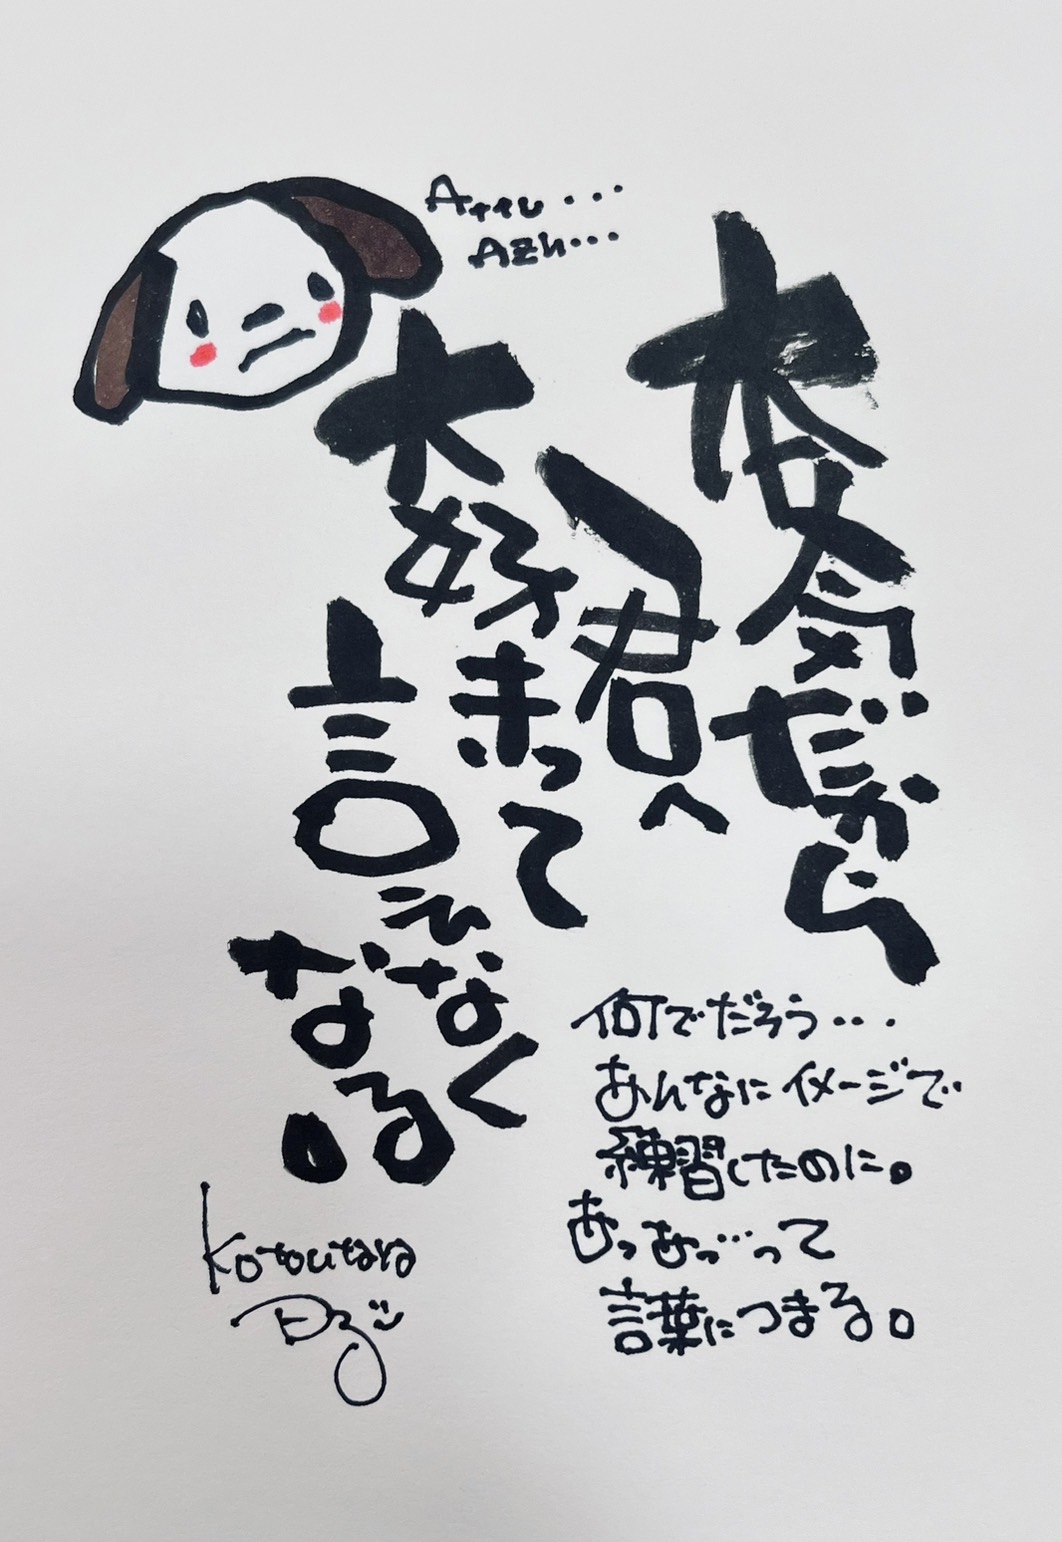 Attu・・・
Azu・・・
本気だから
君へ
大好きって
言えなく
なる。
何でだろう・・・
あんなにイメージで
練習したのに。
あっあっ…って
言葉につまる。
Kotoutara